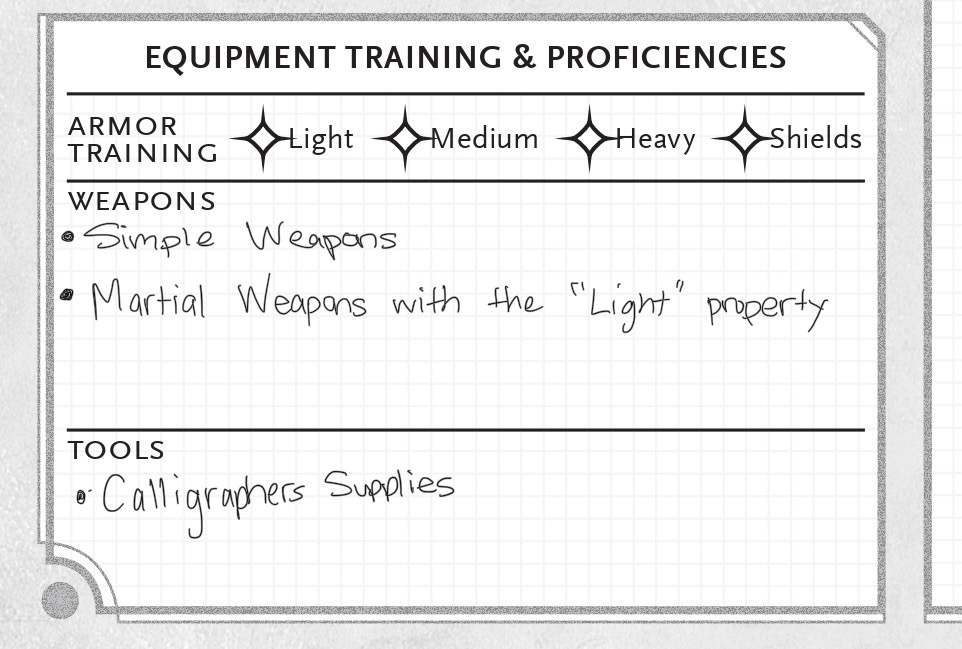 EQUIPMENT TRAINING & PROFICIENCIES
ARMOR TRAINING Light Medium Heavy Shields
WEAPONS
• Simple Weapons
• Martial Weapons with the "Light" property
TOOLS
• Calligraphers Supplies